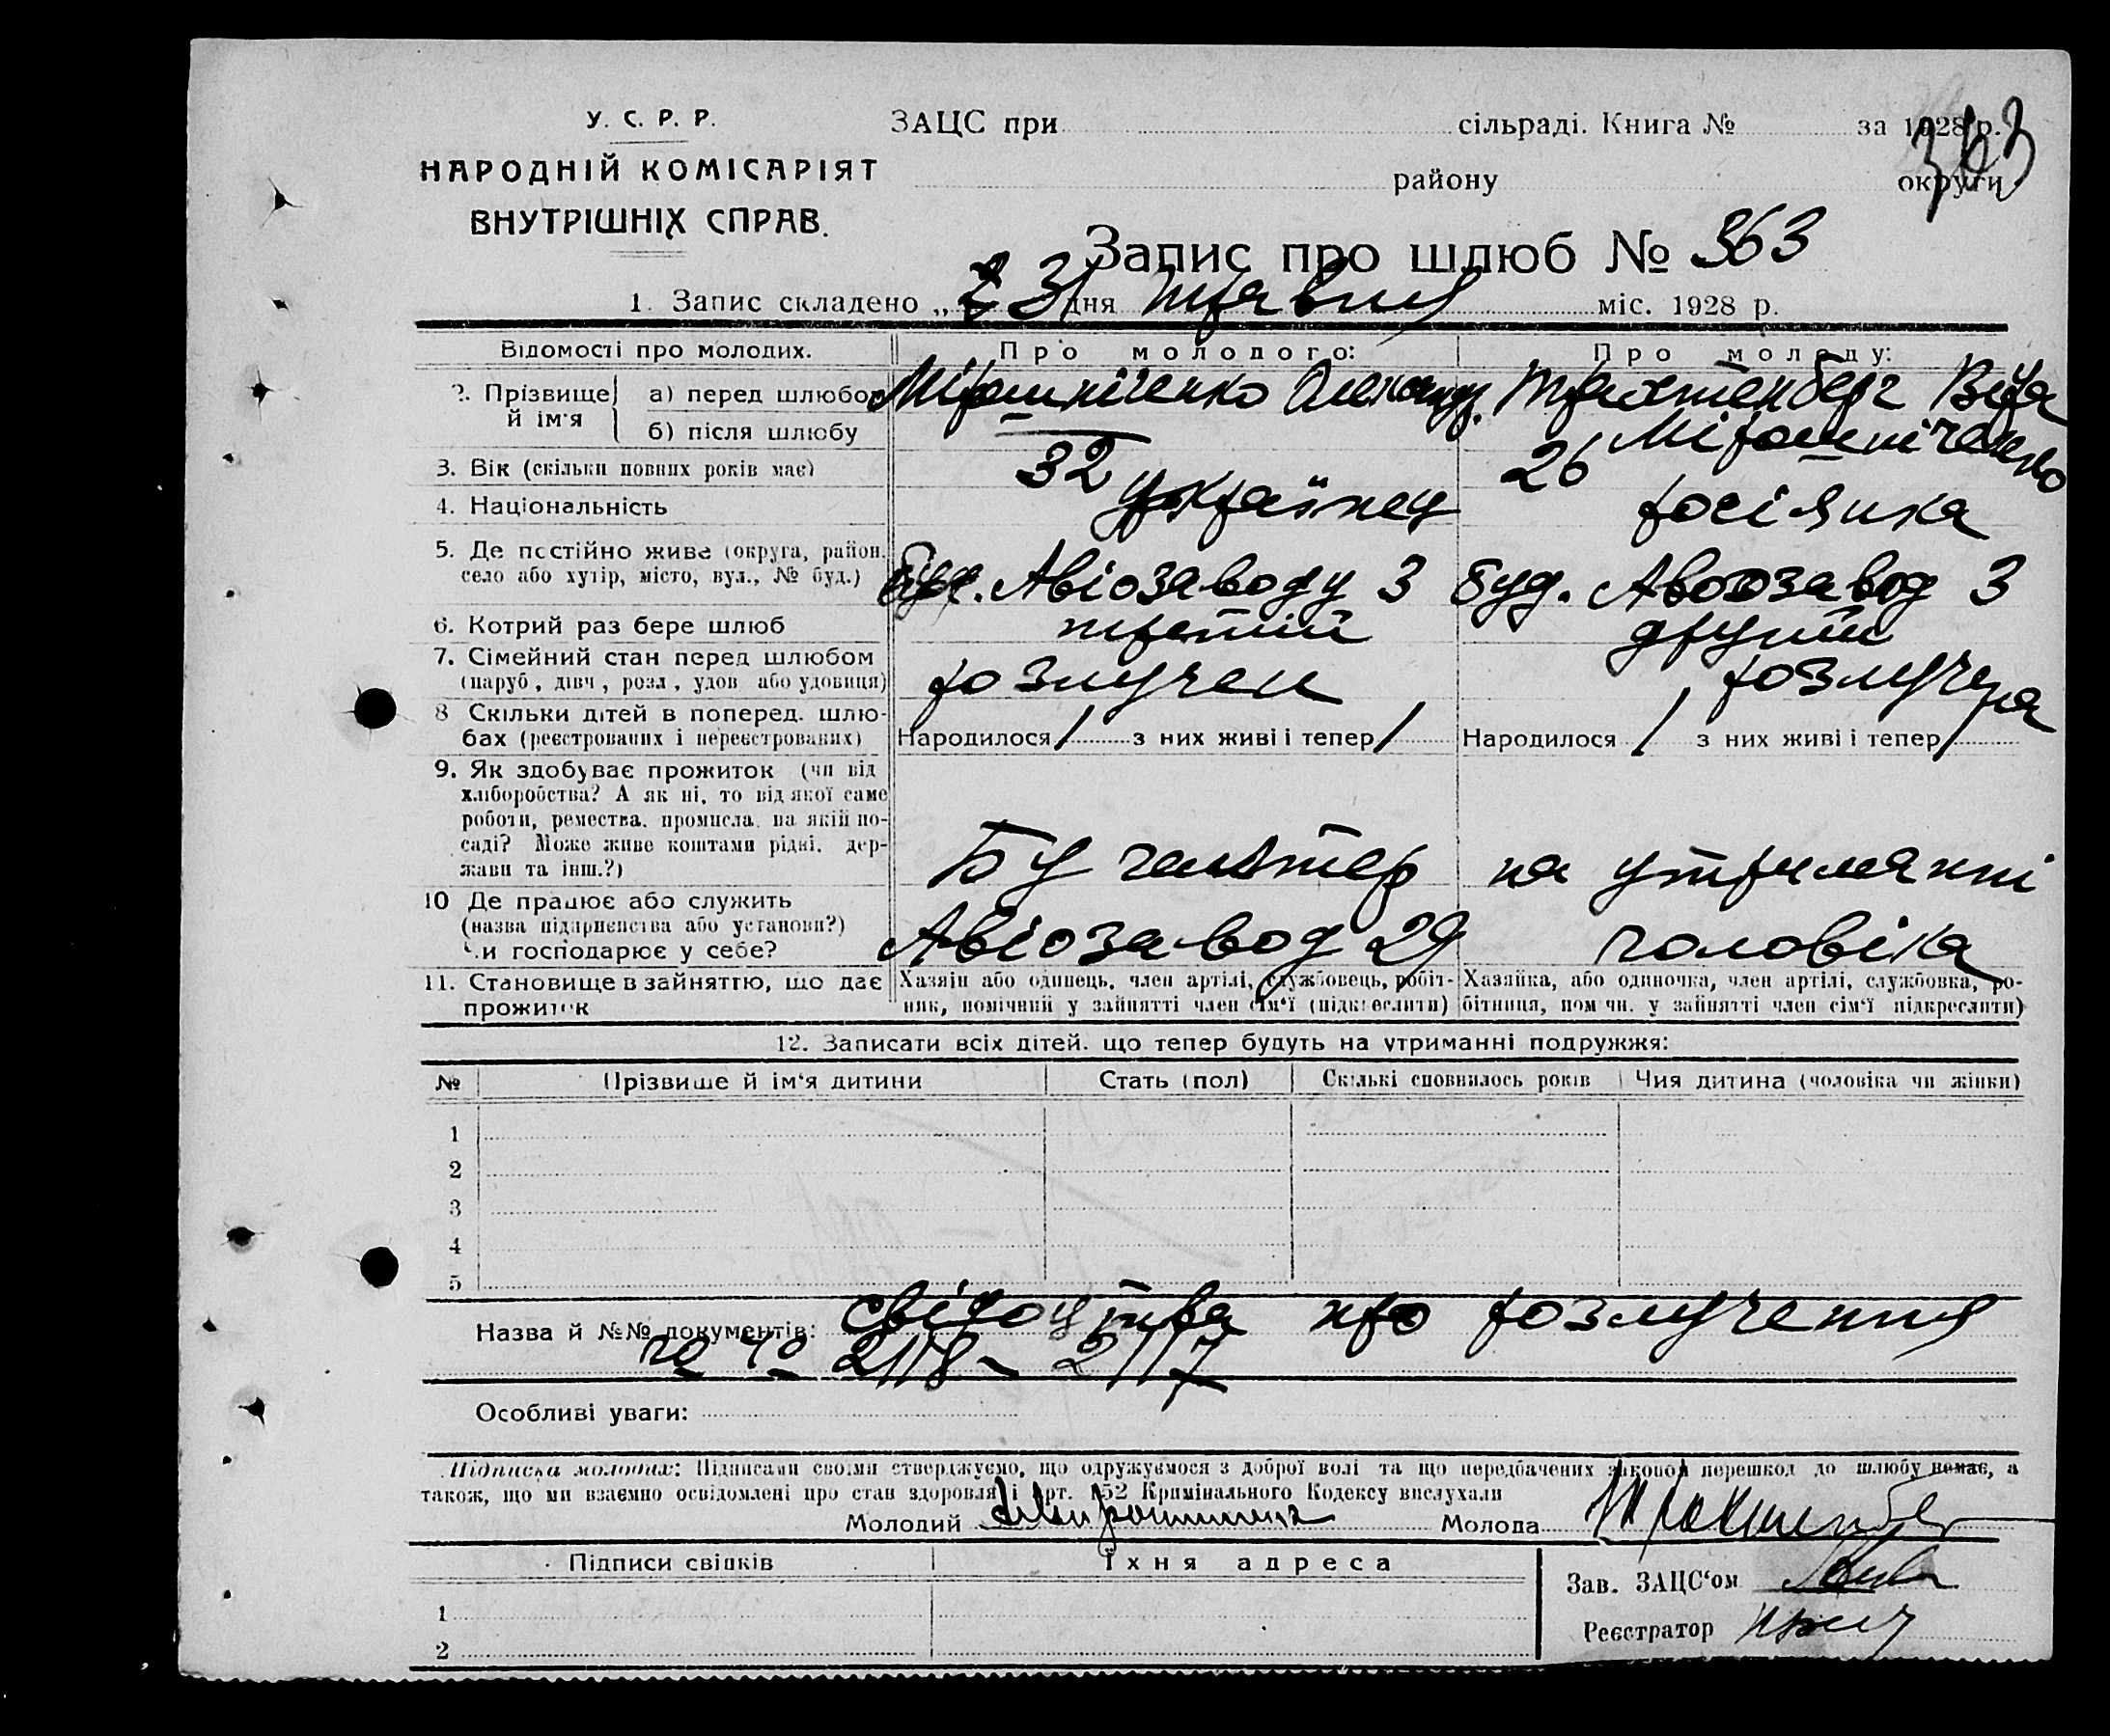 У. С. Р. Р.
НАРОДНІЙ КОМІСАРІЯТ
ВНУТРІШНІХ СПРАВ.
ЗАЦС при сільраді. Книга № за 1928 р.
363
району округи
Запис про шлюб № 363
1. Запис складено „ 31 дня травня міс. 1928 р.
Відомості про молодих. Про молодого: Про молоду:
2. Прізвище й ім'я а) перед шлюбом Мірошніченко Олександ. Трахтенберг Віра
б) після шлюбу Мірошніченко
3. Вік (скільки повних років має) 32 26
4. Національність українец росіянка
5. Де постійно живе (округа, район, село або хутір, місто, вул., № буд.) буд. Авіозаводу 3 буд. Авіозавод 3
6. Котрий раз бере шлюб третій другий
7. Сімейний стан перед шлюбом (паруб, дівч, розл, удов або удовиця) розлучен розлучена
8 Скільки дітей в поперед. шлюбах (реєстрованих і нереєстрованих) Народилося 1 з них живі і тепер 1 Народилося 1 з них живі і тепер 1
9. Як здобуває прожиток (чи від
хліборобства? А як ні, то від якої саме
роботи, ремества, промисла, на якій по-
саді? Може живе коштами рідні, дер-
жави та інш.?) Бухгалтер на утриманні
10 Де працює або служить
(назва підприємства або установи?)
Чи господарює у себе? Авіозавод 29 чоловіка
11. Становище в зайняттю, що дає прожиток
Хазяїн або одинець, член артілі, службовець, робіт-
ник, помічний у зайнятті член сім'ї (підкреслити)
Хазяйка, або одиночка, член артілі, службовка, ро-
бітниця, пом чн. у зайнятті член сім'ї підкреслити)
12. Записати всіх дітей, що тепер будуть на утриманні подружжя:
№ Прізвише й ім'я дитини Стать (пол) Скількі сповнилось років Чия дитина (чоловіка чи жінки)
1
2
3
4
5
Назва й №№ документів: свідоцтва про розлучення
2118 - 2117
Особливі уваги:
Підписка молодих: Підписами своіми стверджуємо, що одружуємося з доброї волі та що передбачених законом перешкод до шлюбу немає, а
також, що ми взаємно освідомлені про стан здоровля і арт. 152 Кримінального Кодексу вислухали
Молодий Молода Трахтенбер
Підписи свідків Їхня адреса
Зав. ЗАЦС'ом
1
Реєстратор
2